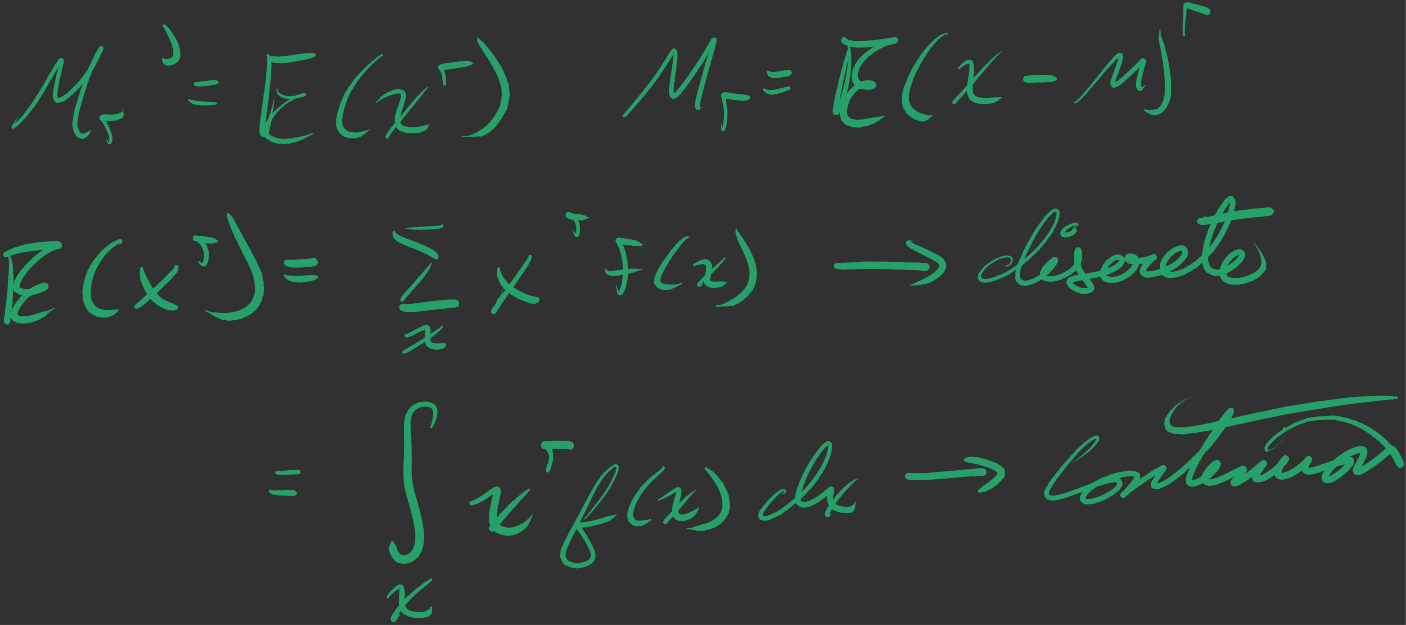 μᵣ' = E(xʳ)   μᵣ = E(x - μ)ʳ
E(xʳ) = Σₓ xʳ f(x) → discrete
= ∫ₓ xʳ f(x) dx → Continuous